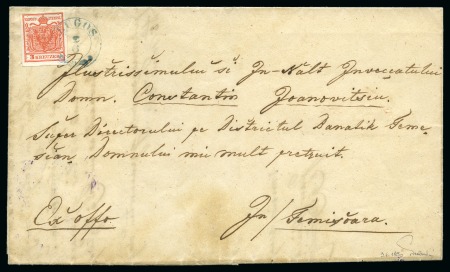 LUGOS
Ilustrissimului si In-Nalt Invecatului
Domn. Constantin Joanovitsiu.
Super Directorului pe Districtul Banatik Teme-
sian, Domnului miu mult pretzuit.
Ex offo.
In/ Temisoara.